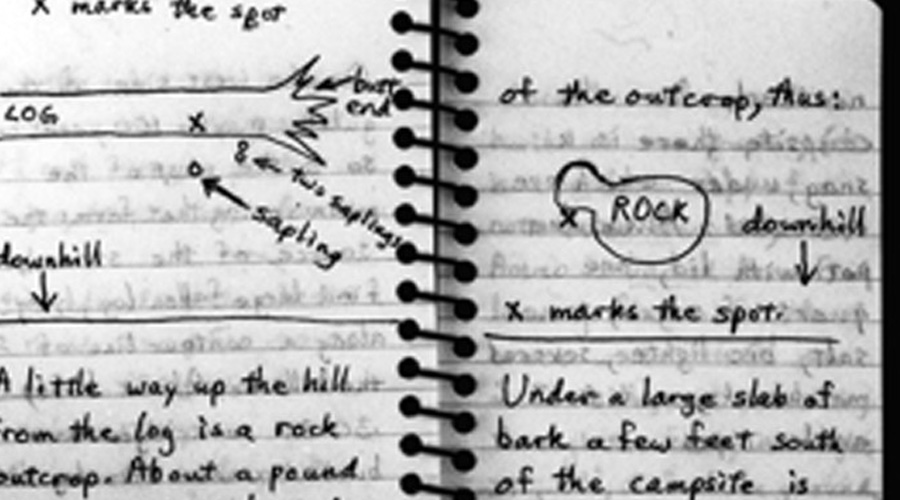 X marks the spot
butt
end
LOG
X
two saplings
sapling
downhill
A little way up the hill
from the log is a rock
outcrop. About a pound
of the outcrop, thus:
ROCK
X
downhill
X marks the spot.
Under a large slab of
bark a few feet south
of the campsite is